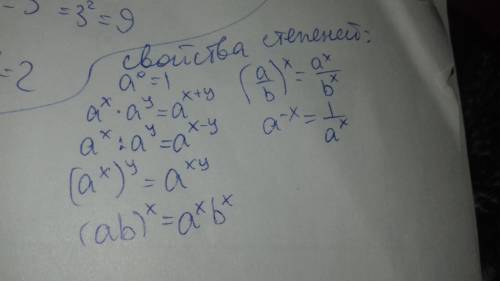 - 3 = 3² = 9
= 2
свойства степеней:
a⁰ = 1
aˣ · aʸ = aˣ⁺ʸ
aˣ : aʸ = aˣ⁻ʸ
(aˣ)ʸ = aˣʸ
(ab)ˣ = aˣbˣ
(a/b)ˣ = aˣ/bˣ
a⁻ˣ = 1/aˣ